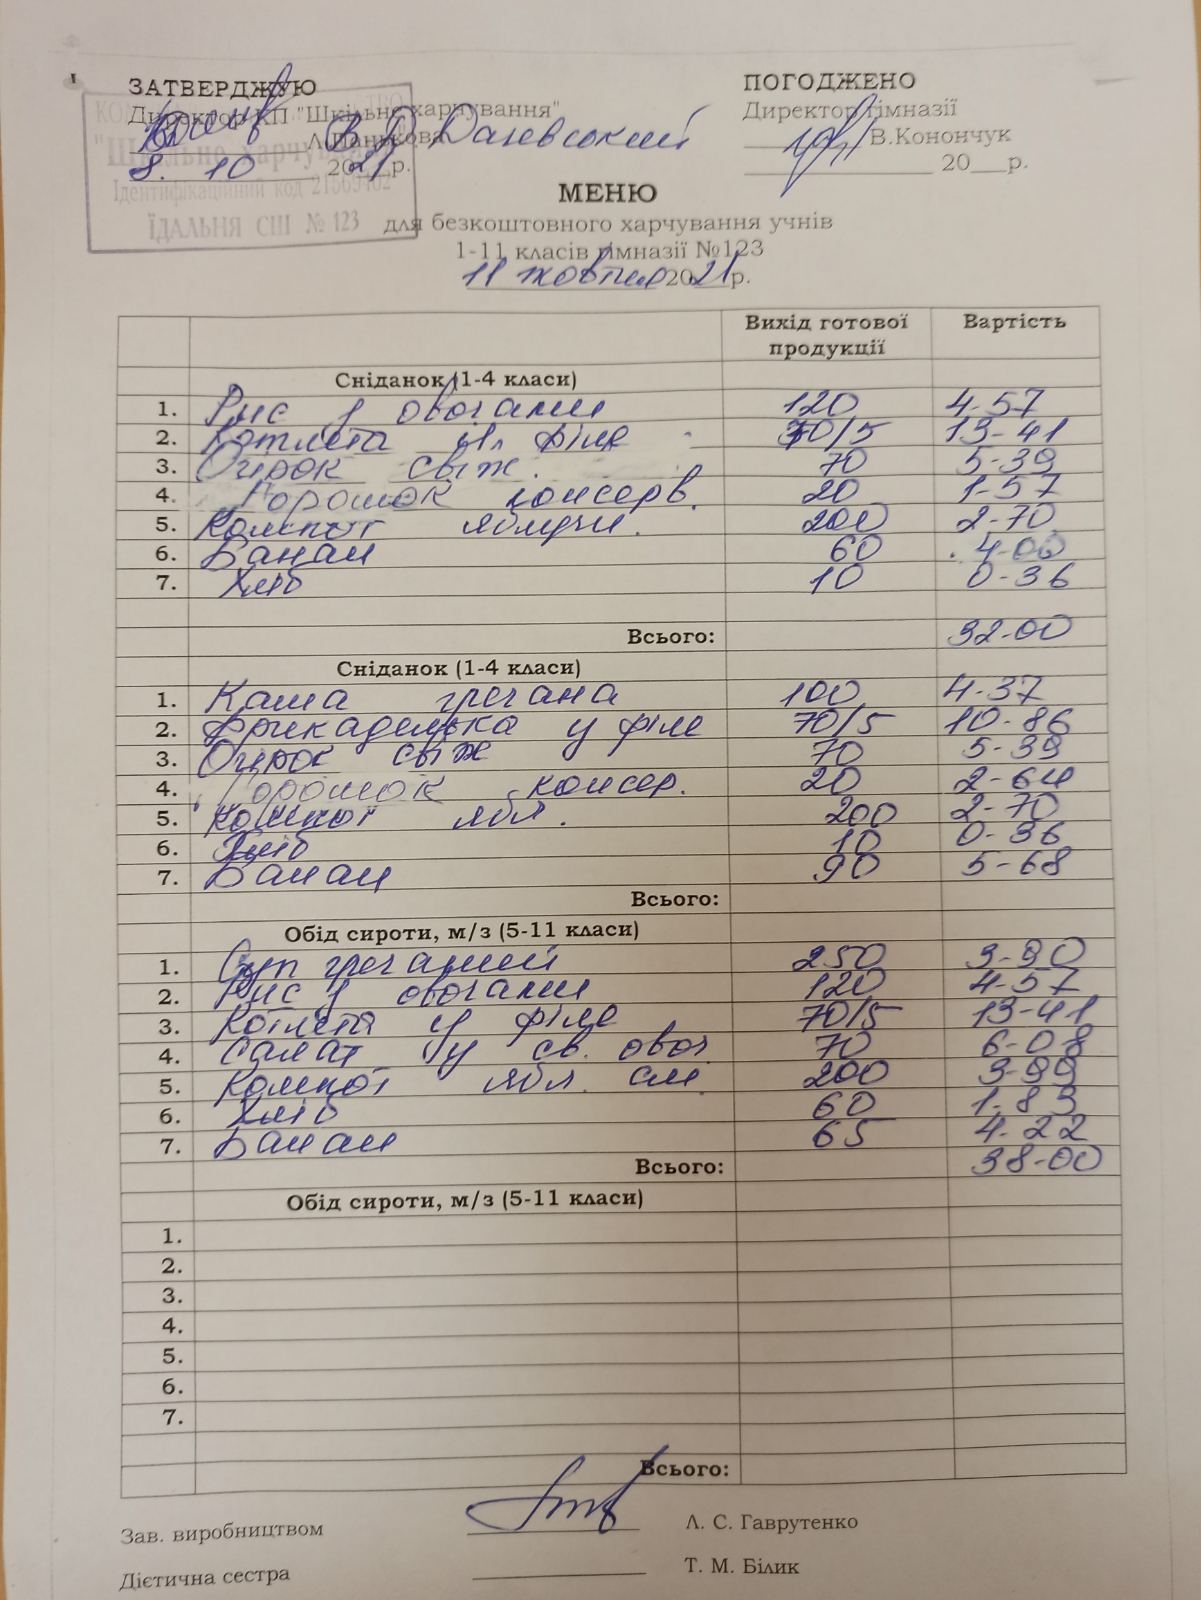 ЗАТВЕРДЖУЮ
Директор КП "Шкільне харчування"
Л.Панькова В. Даневський
8. 10 2021р.
КОМУНАЛЬНЕ ПІДПРИЄМСТВО
"Шкільне харчування"
Ідентифікаційний код 21569402
ЇДАЛЬНЯ СШ № 123
ПОГОДЖЕНО
Директор гімназії
В.Конончук
20___р.
МЕНЮ
для безкоштовного харчування учнів
1-11 класів гімназії №123
11 жовтня 2021р.
Вихід готової продукції Вартість
Сніданок (1-4 класи)
1. Рис з овочами 120 4-57
2. Котлета філе 70/5 13-41
3. Огірок свіж. 70 5-39
4. Горошок консерв. 20 1-57
5. Компот яблучн. 200 2-70
6. Банан 60 4-00
7. Хліб 10 0-36
Всього: 32-00
Сніданок (1-4 класи)
1. Каша гречана 100 4-37
2. Фрикаделька з філе 70/5 10-86
3. Огірок свіж 70 5-39
4. Горошок консер. 20 2-64
5. Компот ябл. 200 2-70
6. Хліб 10 0-36
7. Банан 90 5-68
Всього:
Обід сироти, м/з (5-11 класи)
1. Суп гречаний 250 3-90
2. Рис з овочами 120 4-57
3. Котлета з філе 70/5 13-41
4. Салат з св. овоч. 70 6-08
5. Компот ябл. 200 3-99
6. Хліб 60 1-83
7. Банан 65 4-22
Всього: 38-00
Обід сироти, м/з (5-11 класи)
1.
2.
3.
4.
5.
6.
7.
Всього:
Зав. виробництвом Л. С. Гаврутенко
Дієтична сестра Т. М. Білик